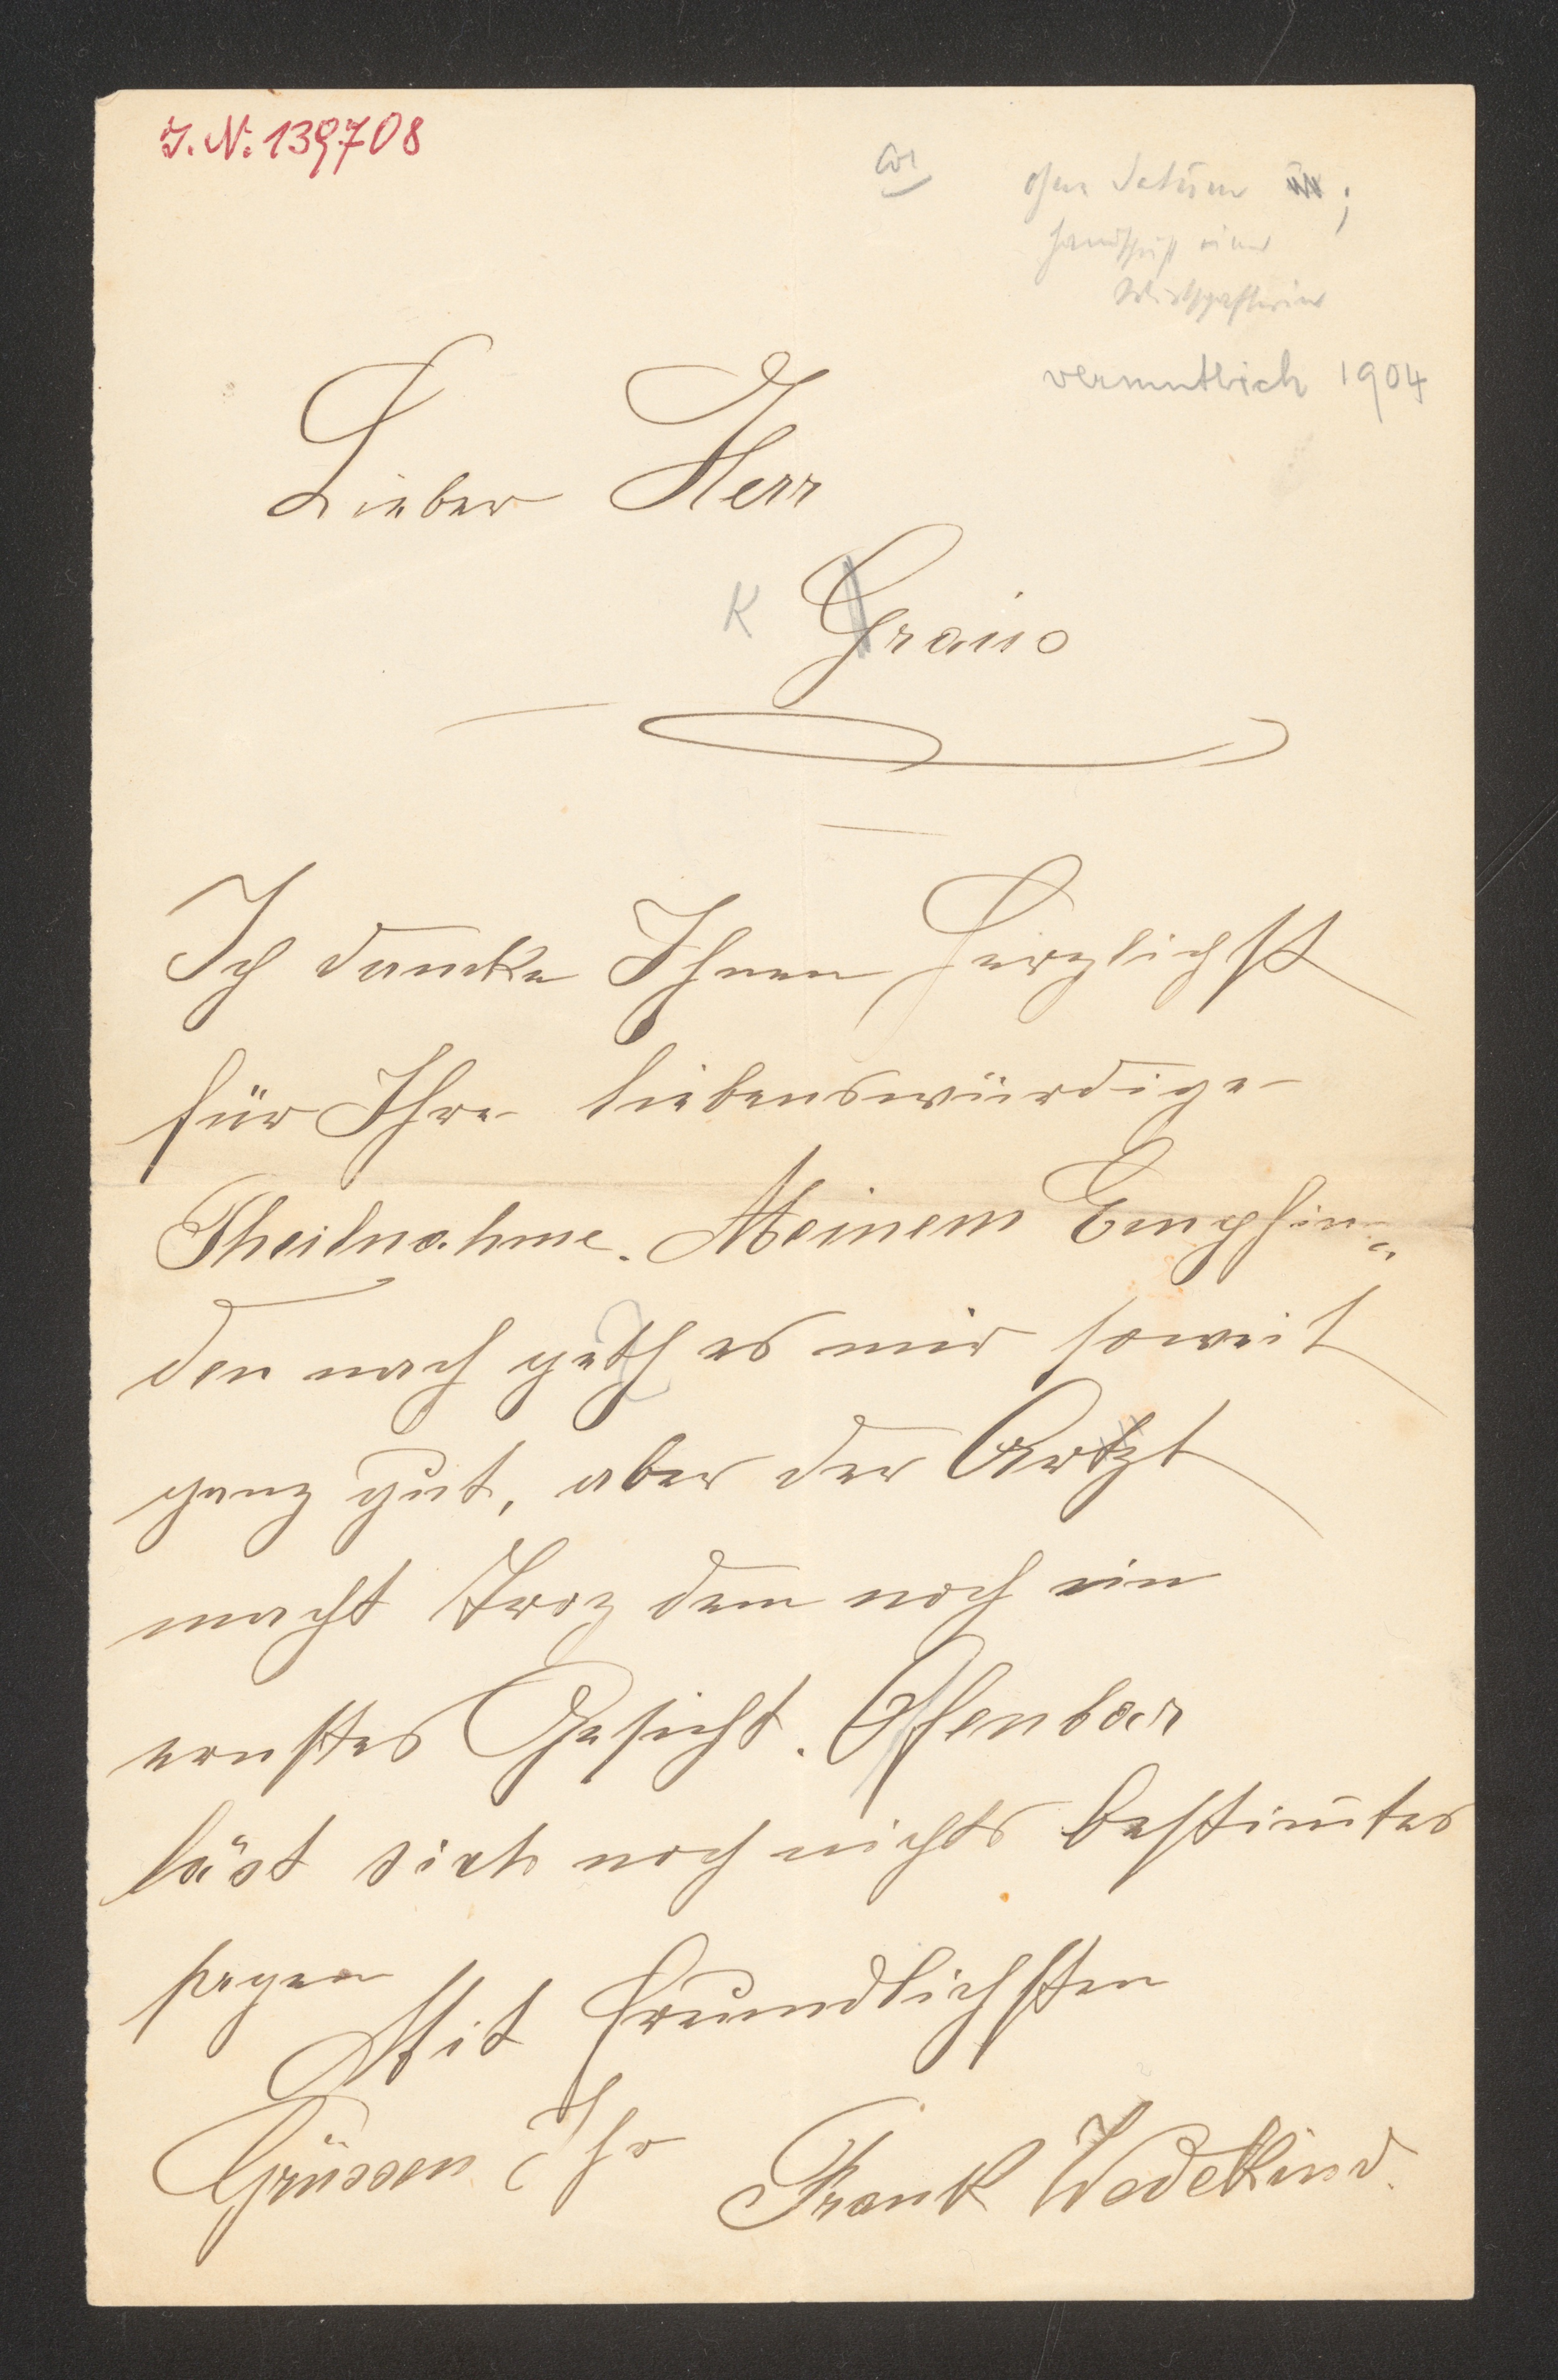 J. N. 139708
ohne Datum ;
Handschrift einer
Wirtschafterin
vermutlich 1904
Lieber Herr
K Graus
Ich dancke Ihnen Herzlichst
für Ihre liebenswürdige
Theilnahme. Meinem Empfin„
den nach geth es mir soweit
ganz gut, aber der Artzt
macht Troz dem noch ein
ernstes Gesicht. Offenbar
läst sich noch nichts bestim̄tes
sagen
Mit freundlichsten
Grüssen Ihr Frank Wedekind.